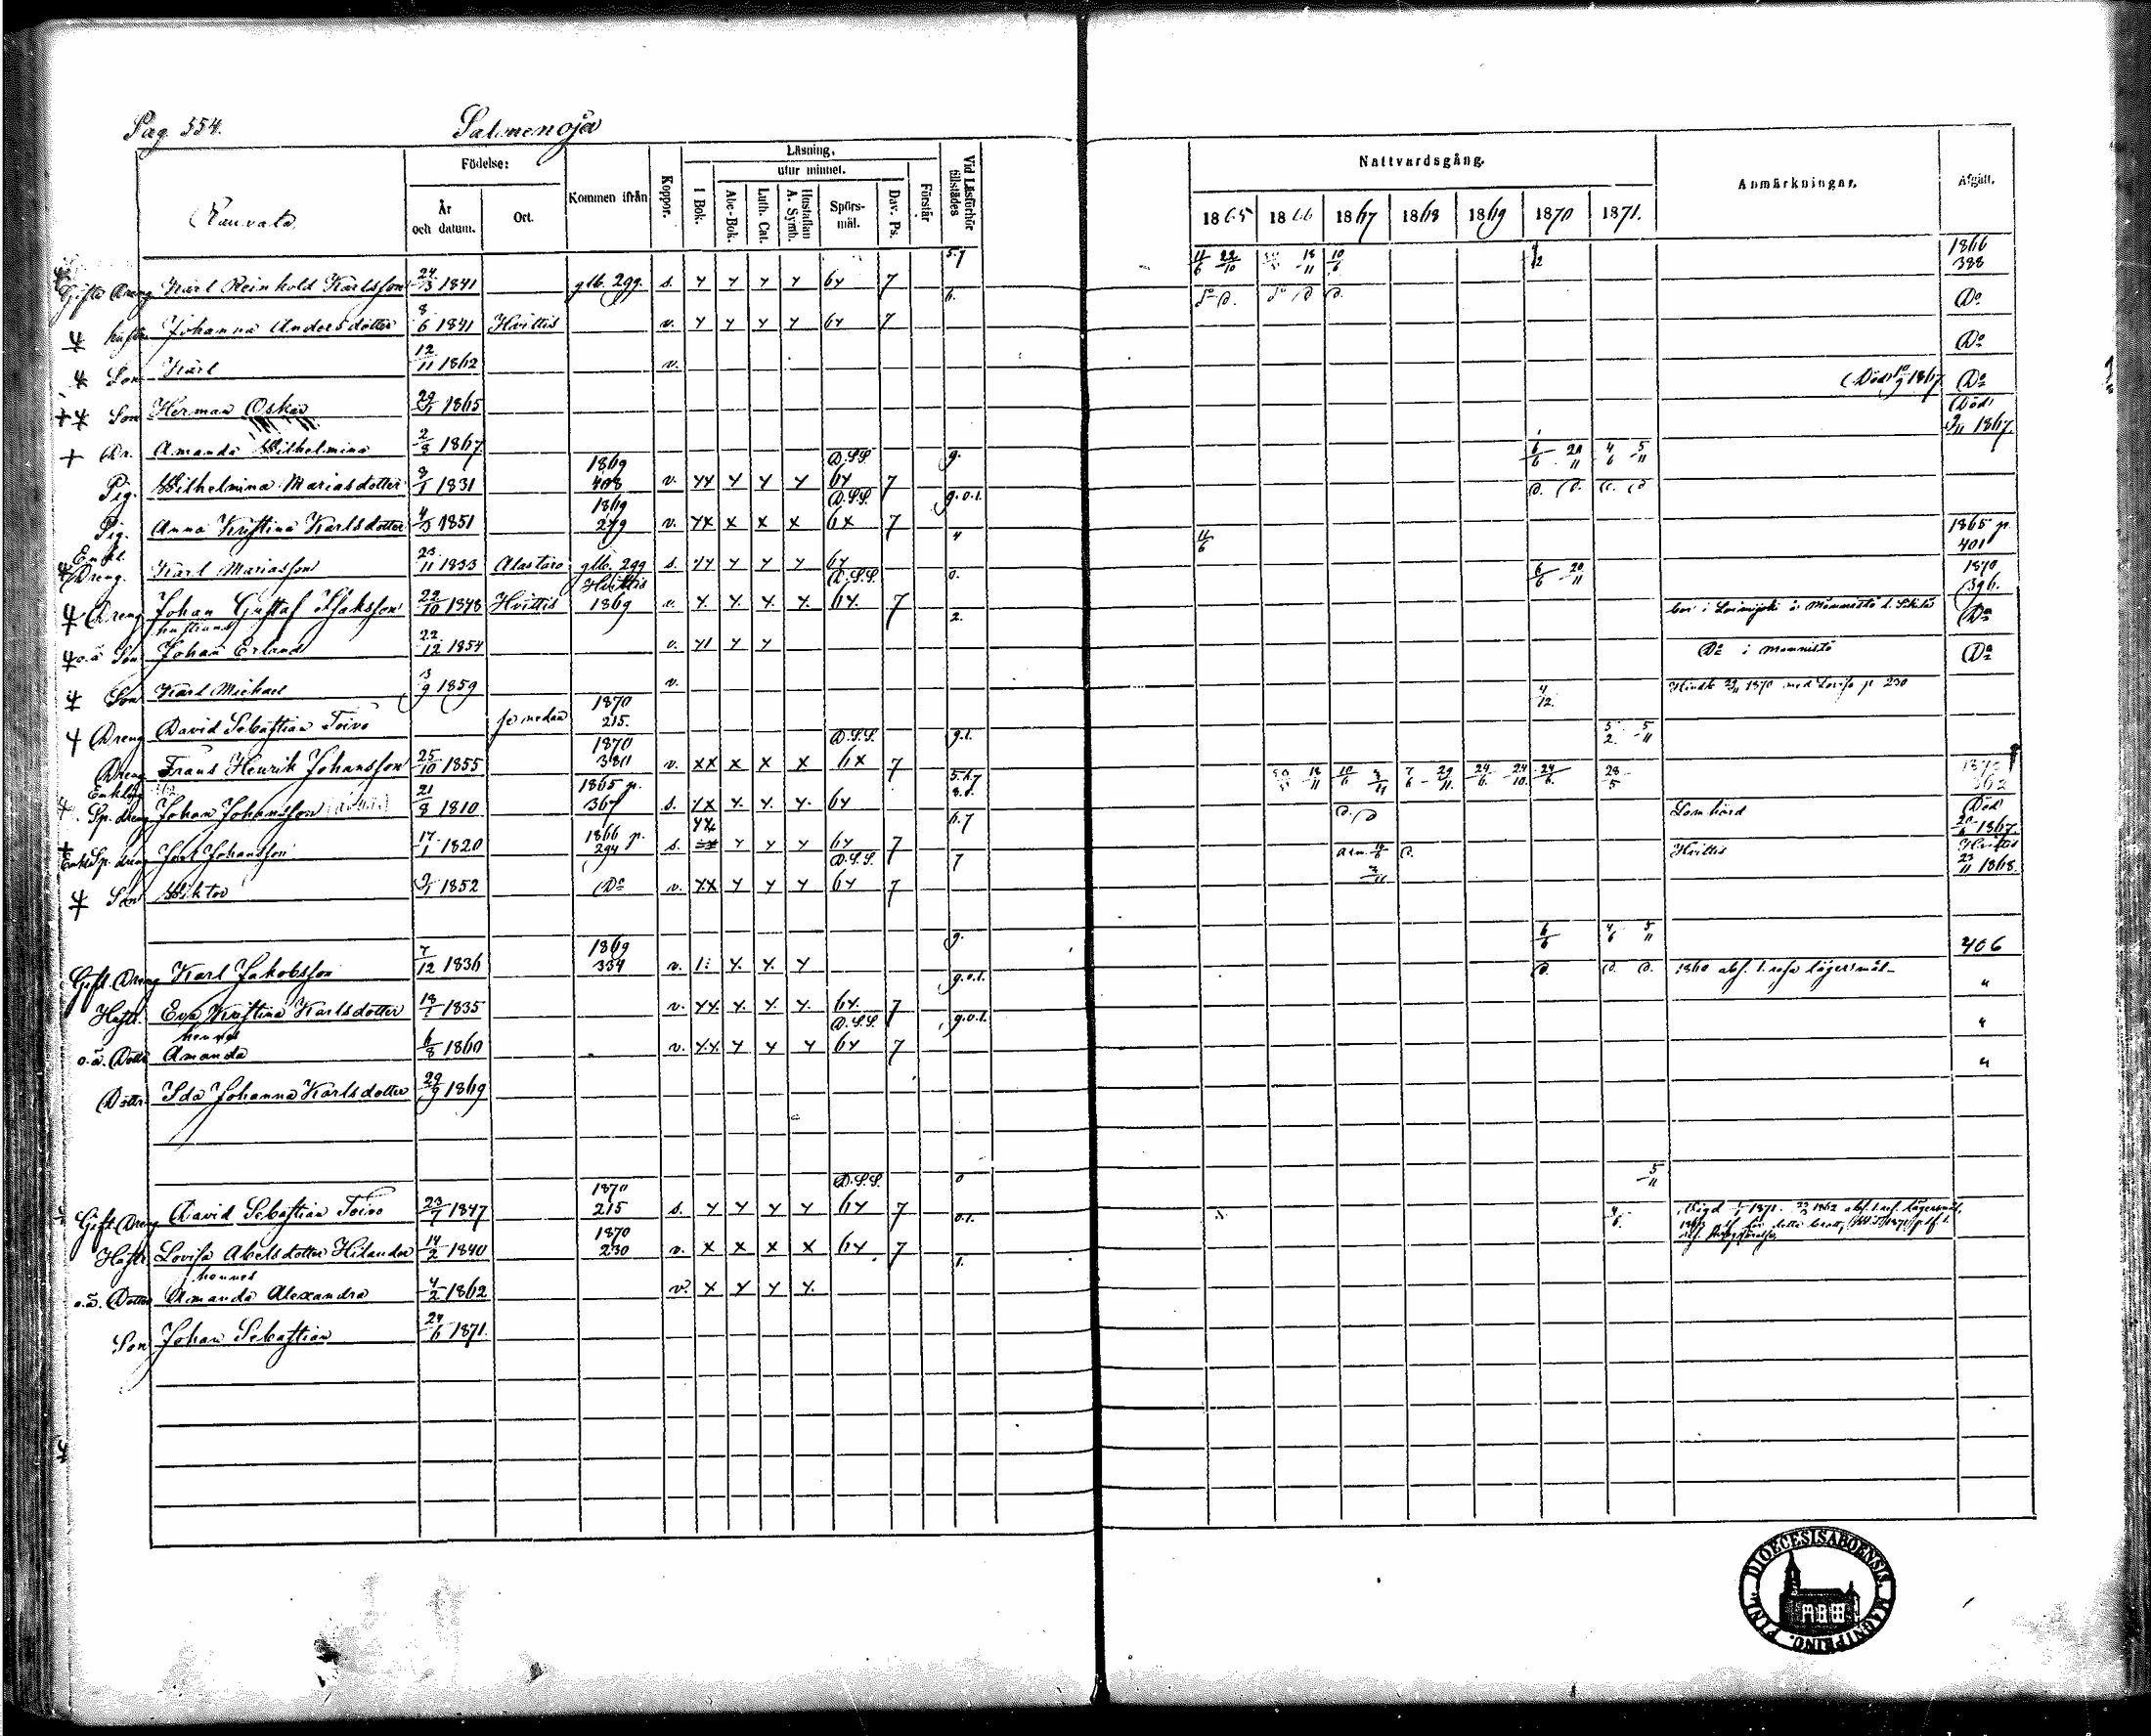 Pag. 554. Salmenoja
Födelse: Kommen ifrån Koppor. Läsning, Vid Läsförhör tillstädes Nattvardsgång. Anmärkningar. Afgått.
utur minnet.
Rauvala År och datum. Ort. I Bok. Abc-Bok. Luth. Cat. Hustaflan A. Symb. Spörsmål. Dav. Ps. Förstår 1865 1866 1867 1868 1869 1870 1871.
Gifte Dreng Karl Reinhold Karlsson 24/3 1841 glb. 299. s. y y y y 6y 7 5.7 11/6 22/10 18/11 10/6 4/12 1866 388
hustru Johanna Andersdotter 8/6 1841 Hvittis v. y y y y 6y 7 6. Do
Son Karl 12/11 1862 v. Do
Son Herman Oskar 29/1 1865 (Död 10/9 1867. Do
Dr. Amanda Wilhelmina 2/8 1867. Död 9/11 1867.
Pig. Wilhelmina Mariasdotter 8/1 1831 1869 408 v. yy y y y D.S.S. 6y 7 g. 6/6 20/11 4/6 5/11
Pig. Anna Kristina Karlsdotter 4/3 1851 1869 279 v. yx x x x D.S.S. 6x 7 g.o.1.
Enkl. Dreng. Karl Mariasson 23/11 1833 Alastaro glb. 299 s. yy y y y 6y 4 11/6 1865 p. 401
Dreng Johan Gustaf Isaksson 22/10 1848 Hvittis Hvittis 1869 v. y. y. y. y. D.S.S. 6y. 7 0. 6/6 20/11 1870 396.
hustruns
o.ä Son Johan Erland 22/12 1854 v. y1 y y 2. Do
Son Karl Michael 13/9 1859 v. Do i Mannistö Do
Dreng David Sebastian Toivo se nedan 1870 215. 4/12. 1870 med Lovisa p 230
Dreng Frans Henrik Johansson 25/10 1855 1870 380 v. xx x x x D.S.S. 6x 7 g.1. 5/2. 5/11
Enkling Sp. dreng Johan Johansson 21/8 1810 1865 p. 367 s. yx y. y. y. 6y 5.6.7 18/11 10/6 7/6 29/11. 24/6. 24/10. 24/6. 28/5
Enkl Sp. dreng Johansson 17/1 1820 1866 p. 294 s. y y y 6y 7 6.7 Lomhärd Död 20/6 1867.
Son Wiktor 9/1 1852 Do v. yx y y y D.S.S. 6y 7 7 Hvittis Hvittis 23/11 1868.
Gift. Dreng Karl Jakobsson 7/12 1836 1869 334 v. 1: y. y. y g. 6/6 4/6 5/11 406
Hustr. Eva Kristina Karlsdotter 18/1 1835 v. yy. y. y. y. 6y. 7 g.o.1. 1860 abs. l. refa lägersmål "
hennes
o.ä. Dottr Amanda 6/8 1860 v. yy. y y y D.S.S. 6y 7 g.o.1. "
Dottr. Ida Johanna Karlsdotter 29/9 1869 "
Gift Dreng David Sebastian Toivo 23/7 1847 1870 215 s. y y y y D.S.S. 6y 7 0 5/11
Hustr. Lovisa Abelsdotter Hilander 14/2 1840 1870 230 v. x x x x 6y. 7 0.1. 4/6. Vigd 1/1 1871. 1862 abs. l. ref. lägersmål,
hennes
o.ä. Dotter Amanda Alexandra 4/2 1862 v. x y y y. 1.
Son Johan Sebastian 24/6 1871.
FINL. DIOECESISABOENSIS. MAGNIPRINC.